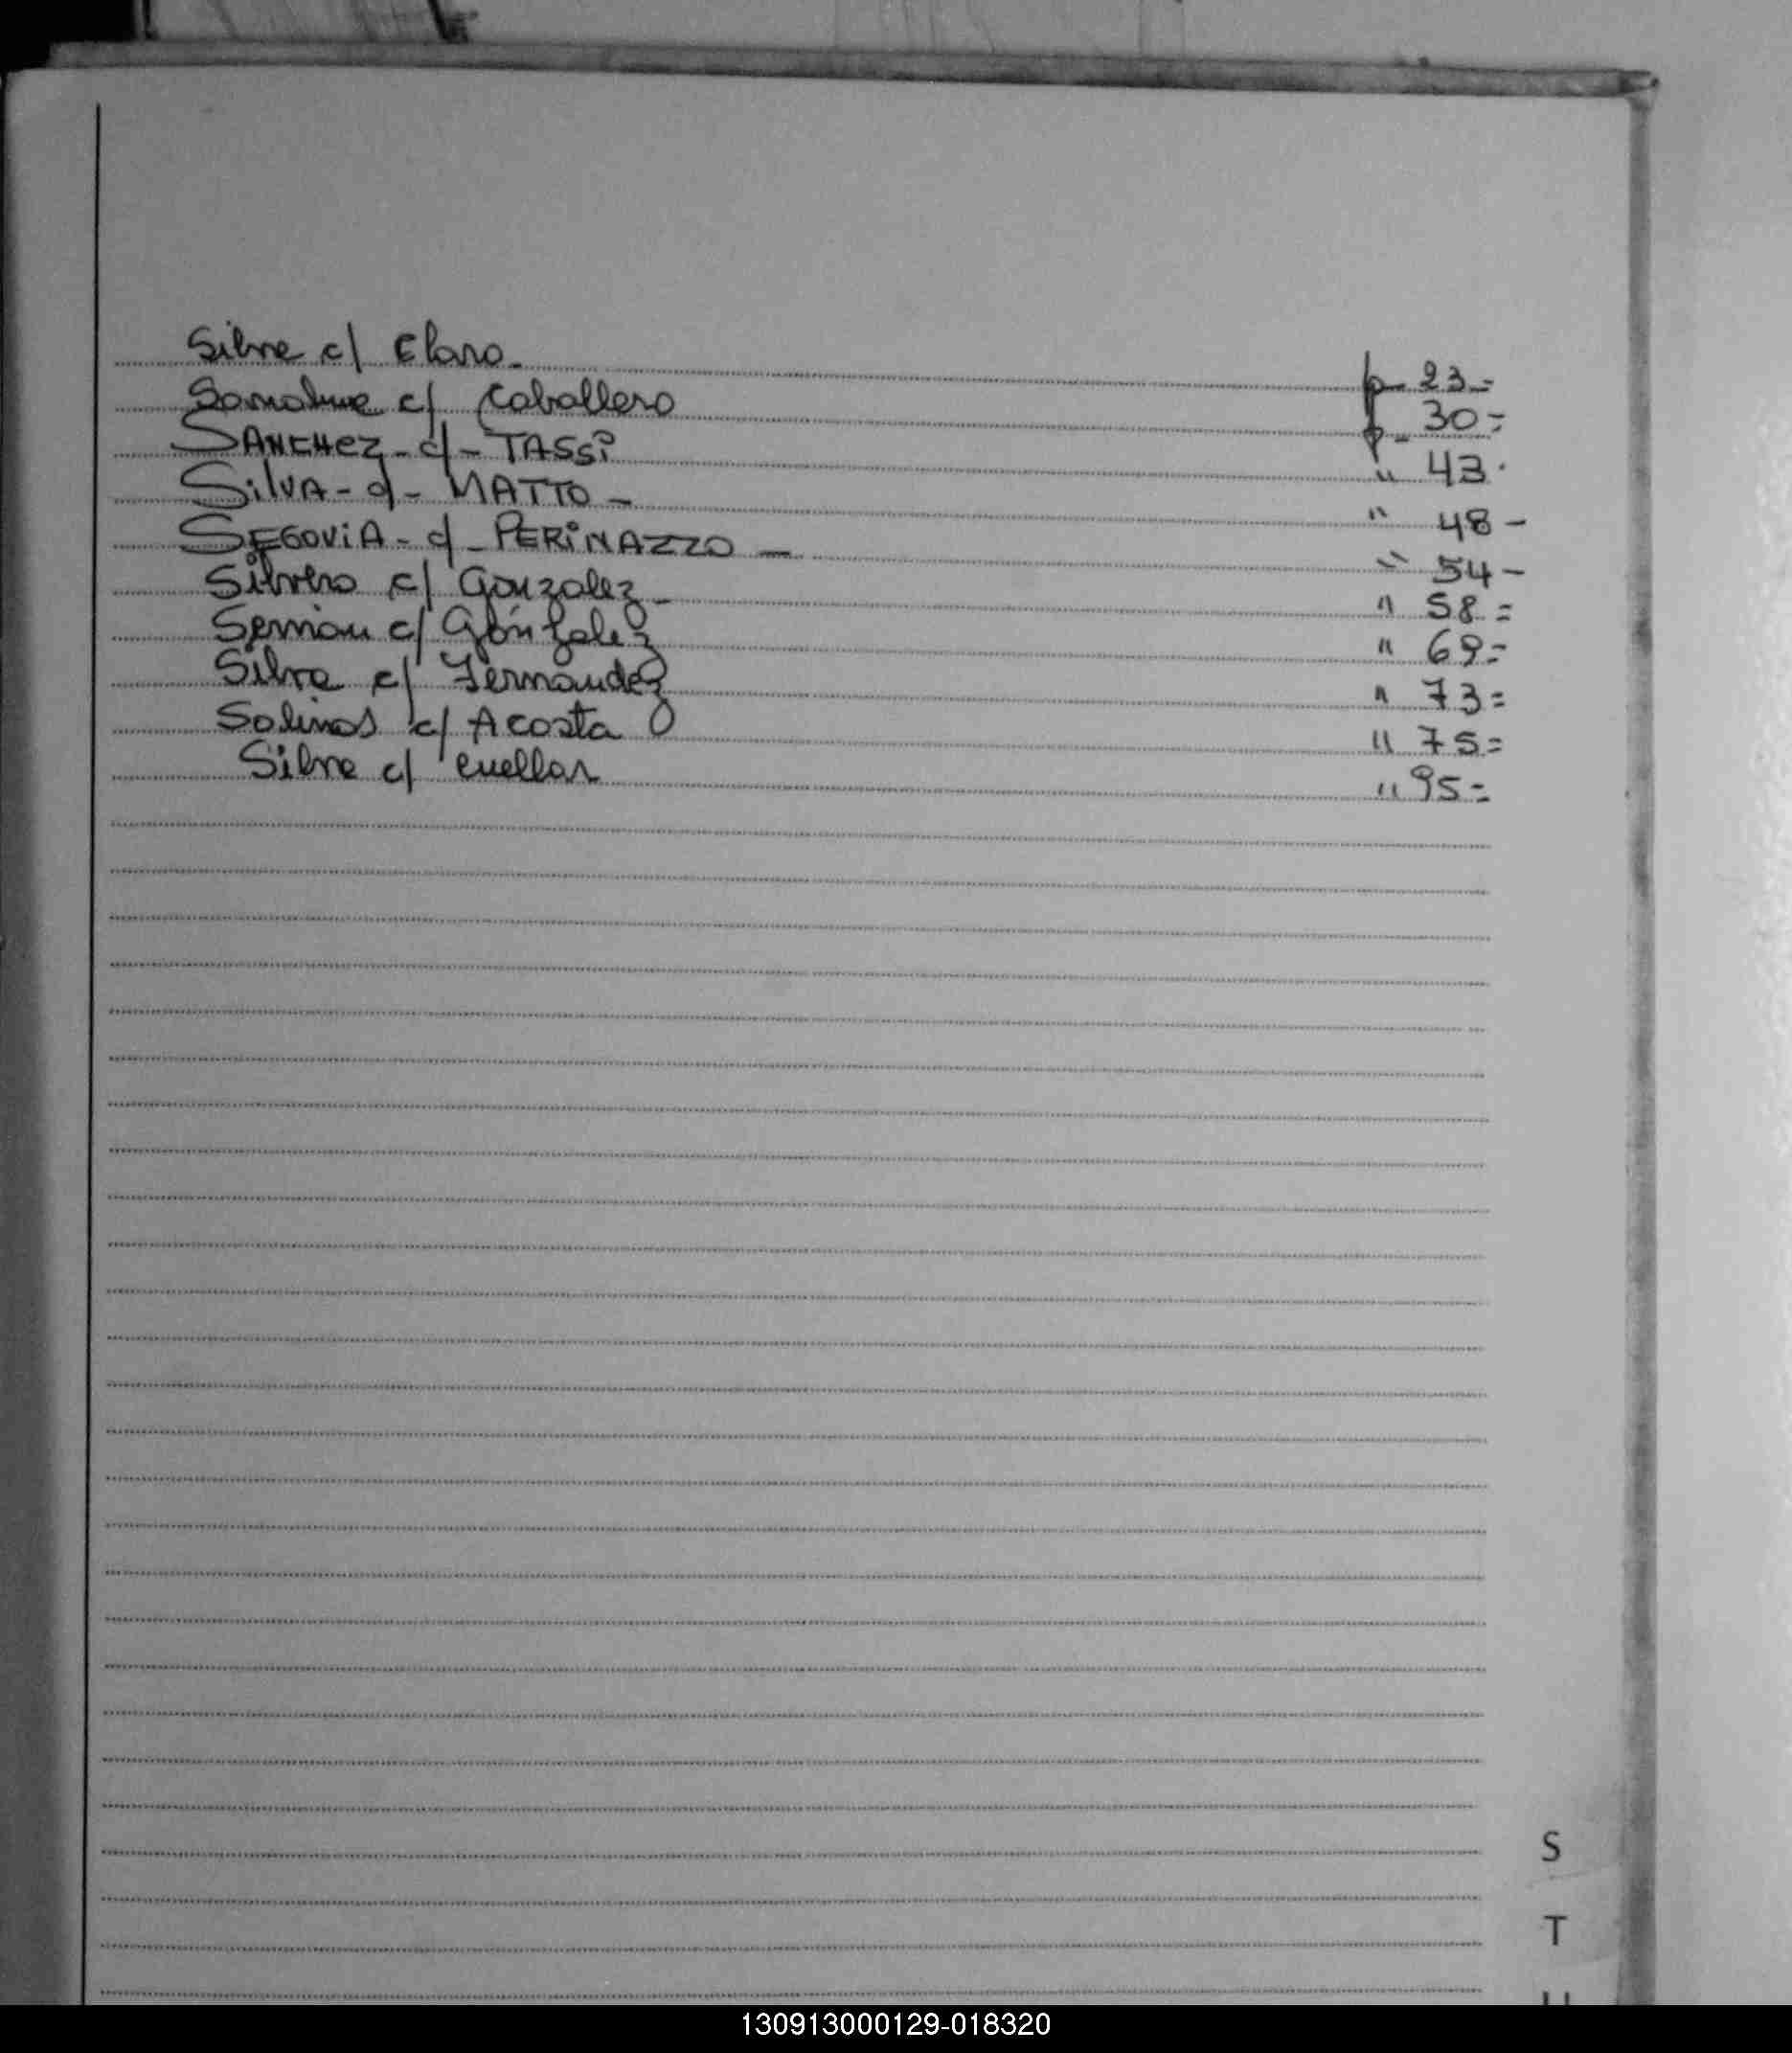 Silva c/ Claro - p- 23=
c/ Caballero p- 30=
SANCHEZ - c/ - TASSi " 43.
SilVA - c/ - MATTO - " 48 -
SEGOViA - c/ - PERiNAZZO - " 54 -
Silvero c/ Gonzalez - " 58 =
c/ González " 69 =
Silva c/ Fernandez " 73 =
Salinas c/ Acosta " 75 =
Silva c/ Cuellar " 95 =
S
T
130913000129-018320